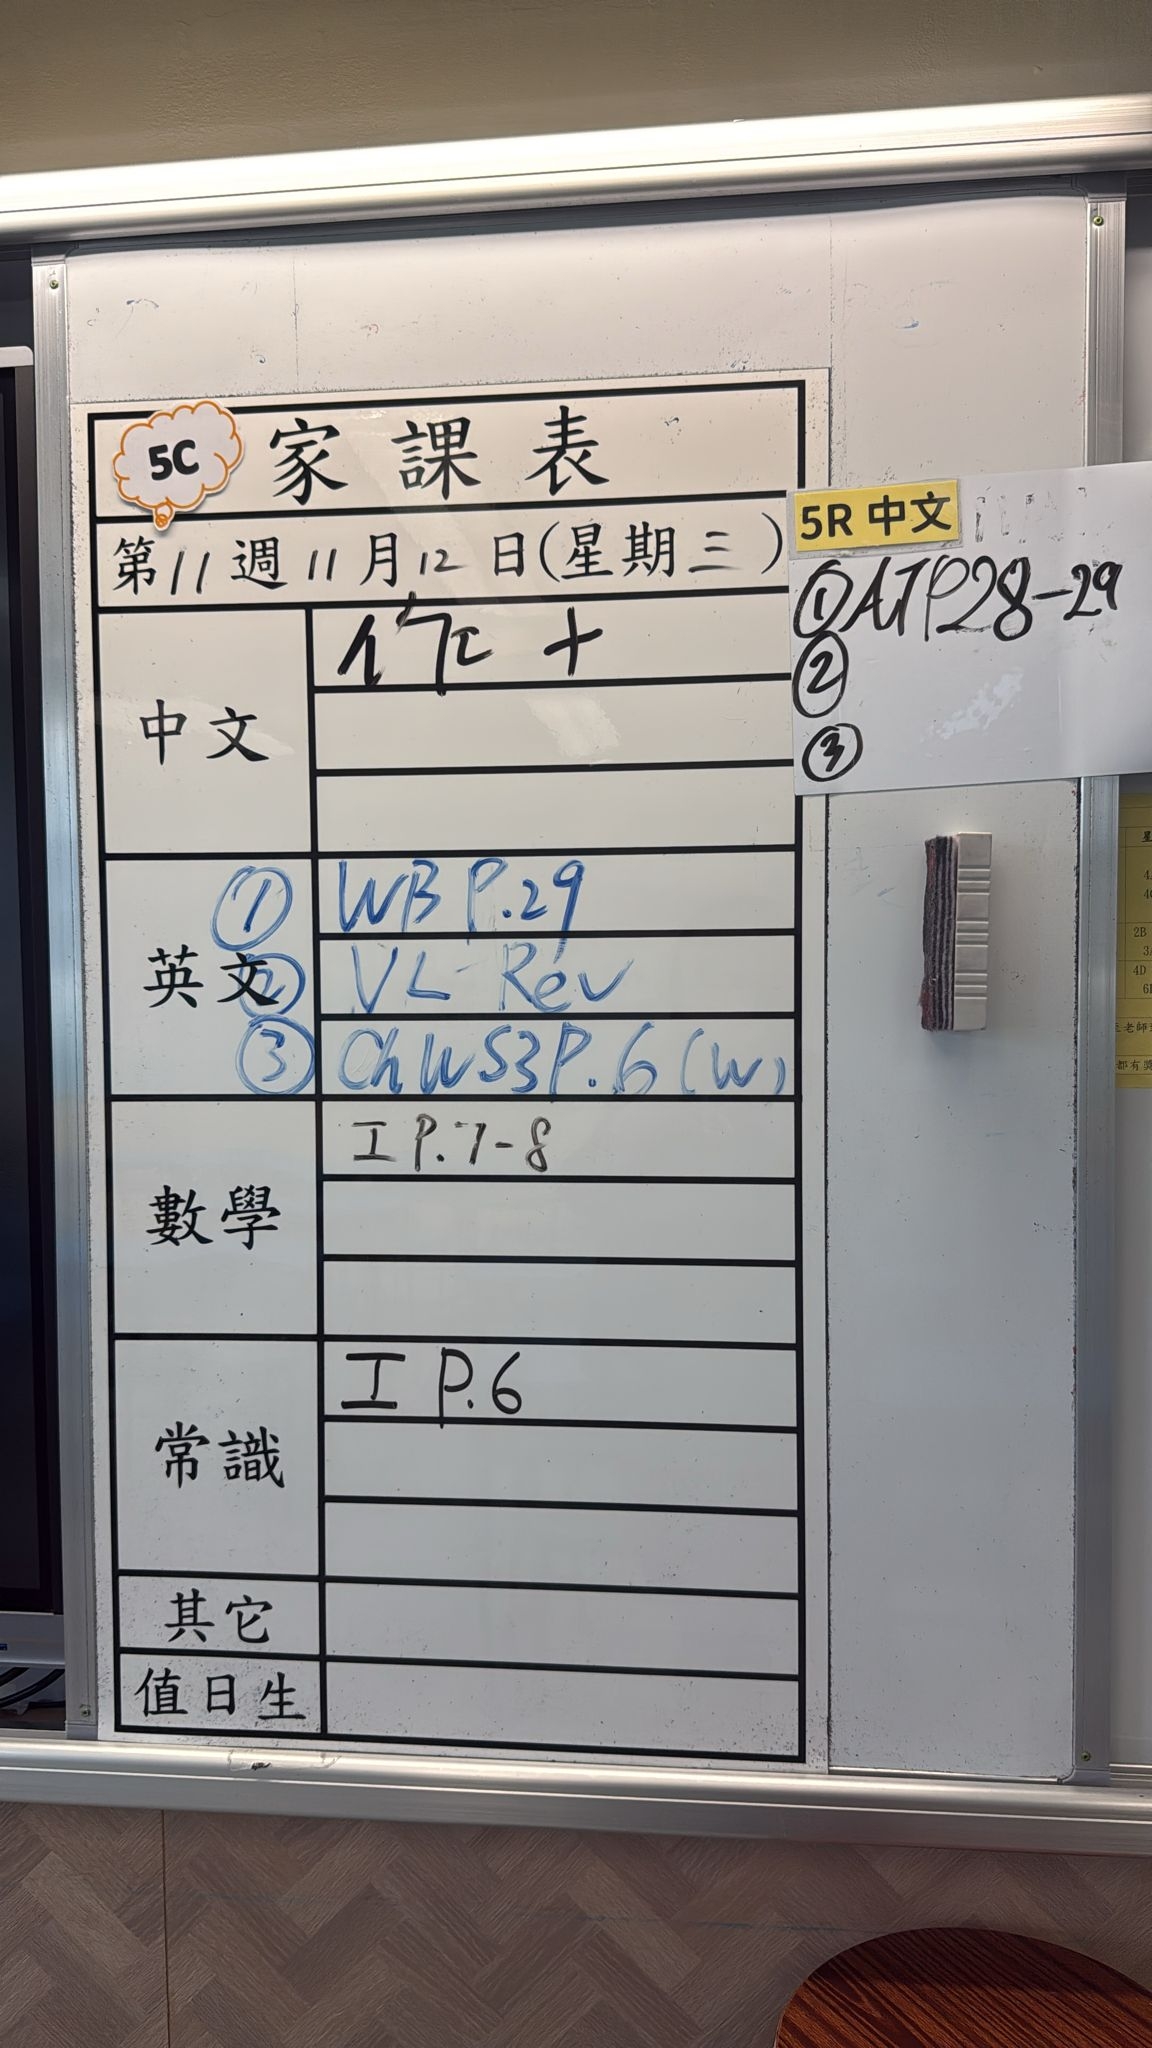 5C 家課表
第11週11月12日(星期三)
中文
英文
① WB P.29
② VL Rev
③ Ch WS3 P.6 (W)
數學
工 P.7-8
常識
工 P.6
其它
值日生
5R 中文
① AJP28-29
②
③
4D
2B
老師
都有獎